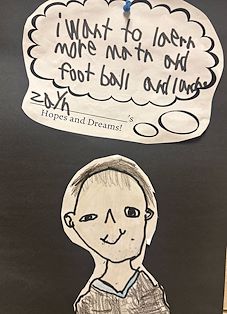 i want to laern
more matn and
foot ball and lunch
zayn 's
Hopes and Dreams!